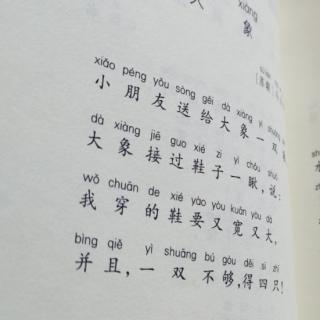 xiàng
象
xiǎo péng yǒu sòng gěi dà xiàng yì shuāng
小朋友送给大象一双
dà xiàng jiē guo xié zi yì chǒu shuō
大象接过鞋子一瞅,说:
wǒ chuān de xié yào yòu kuān yòu dà
我穿的鞋要又宽又大,
bìng qiě yì shuāng bú gòu děi sì zhī
并且,一双不够,得四只!